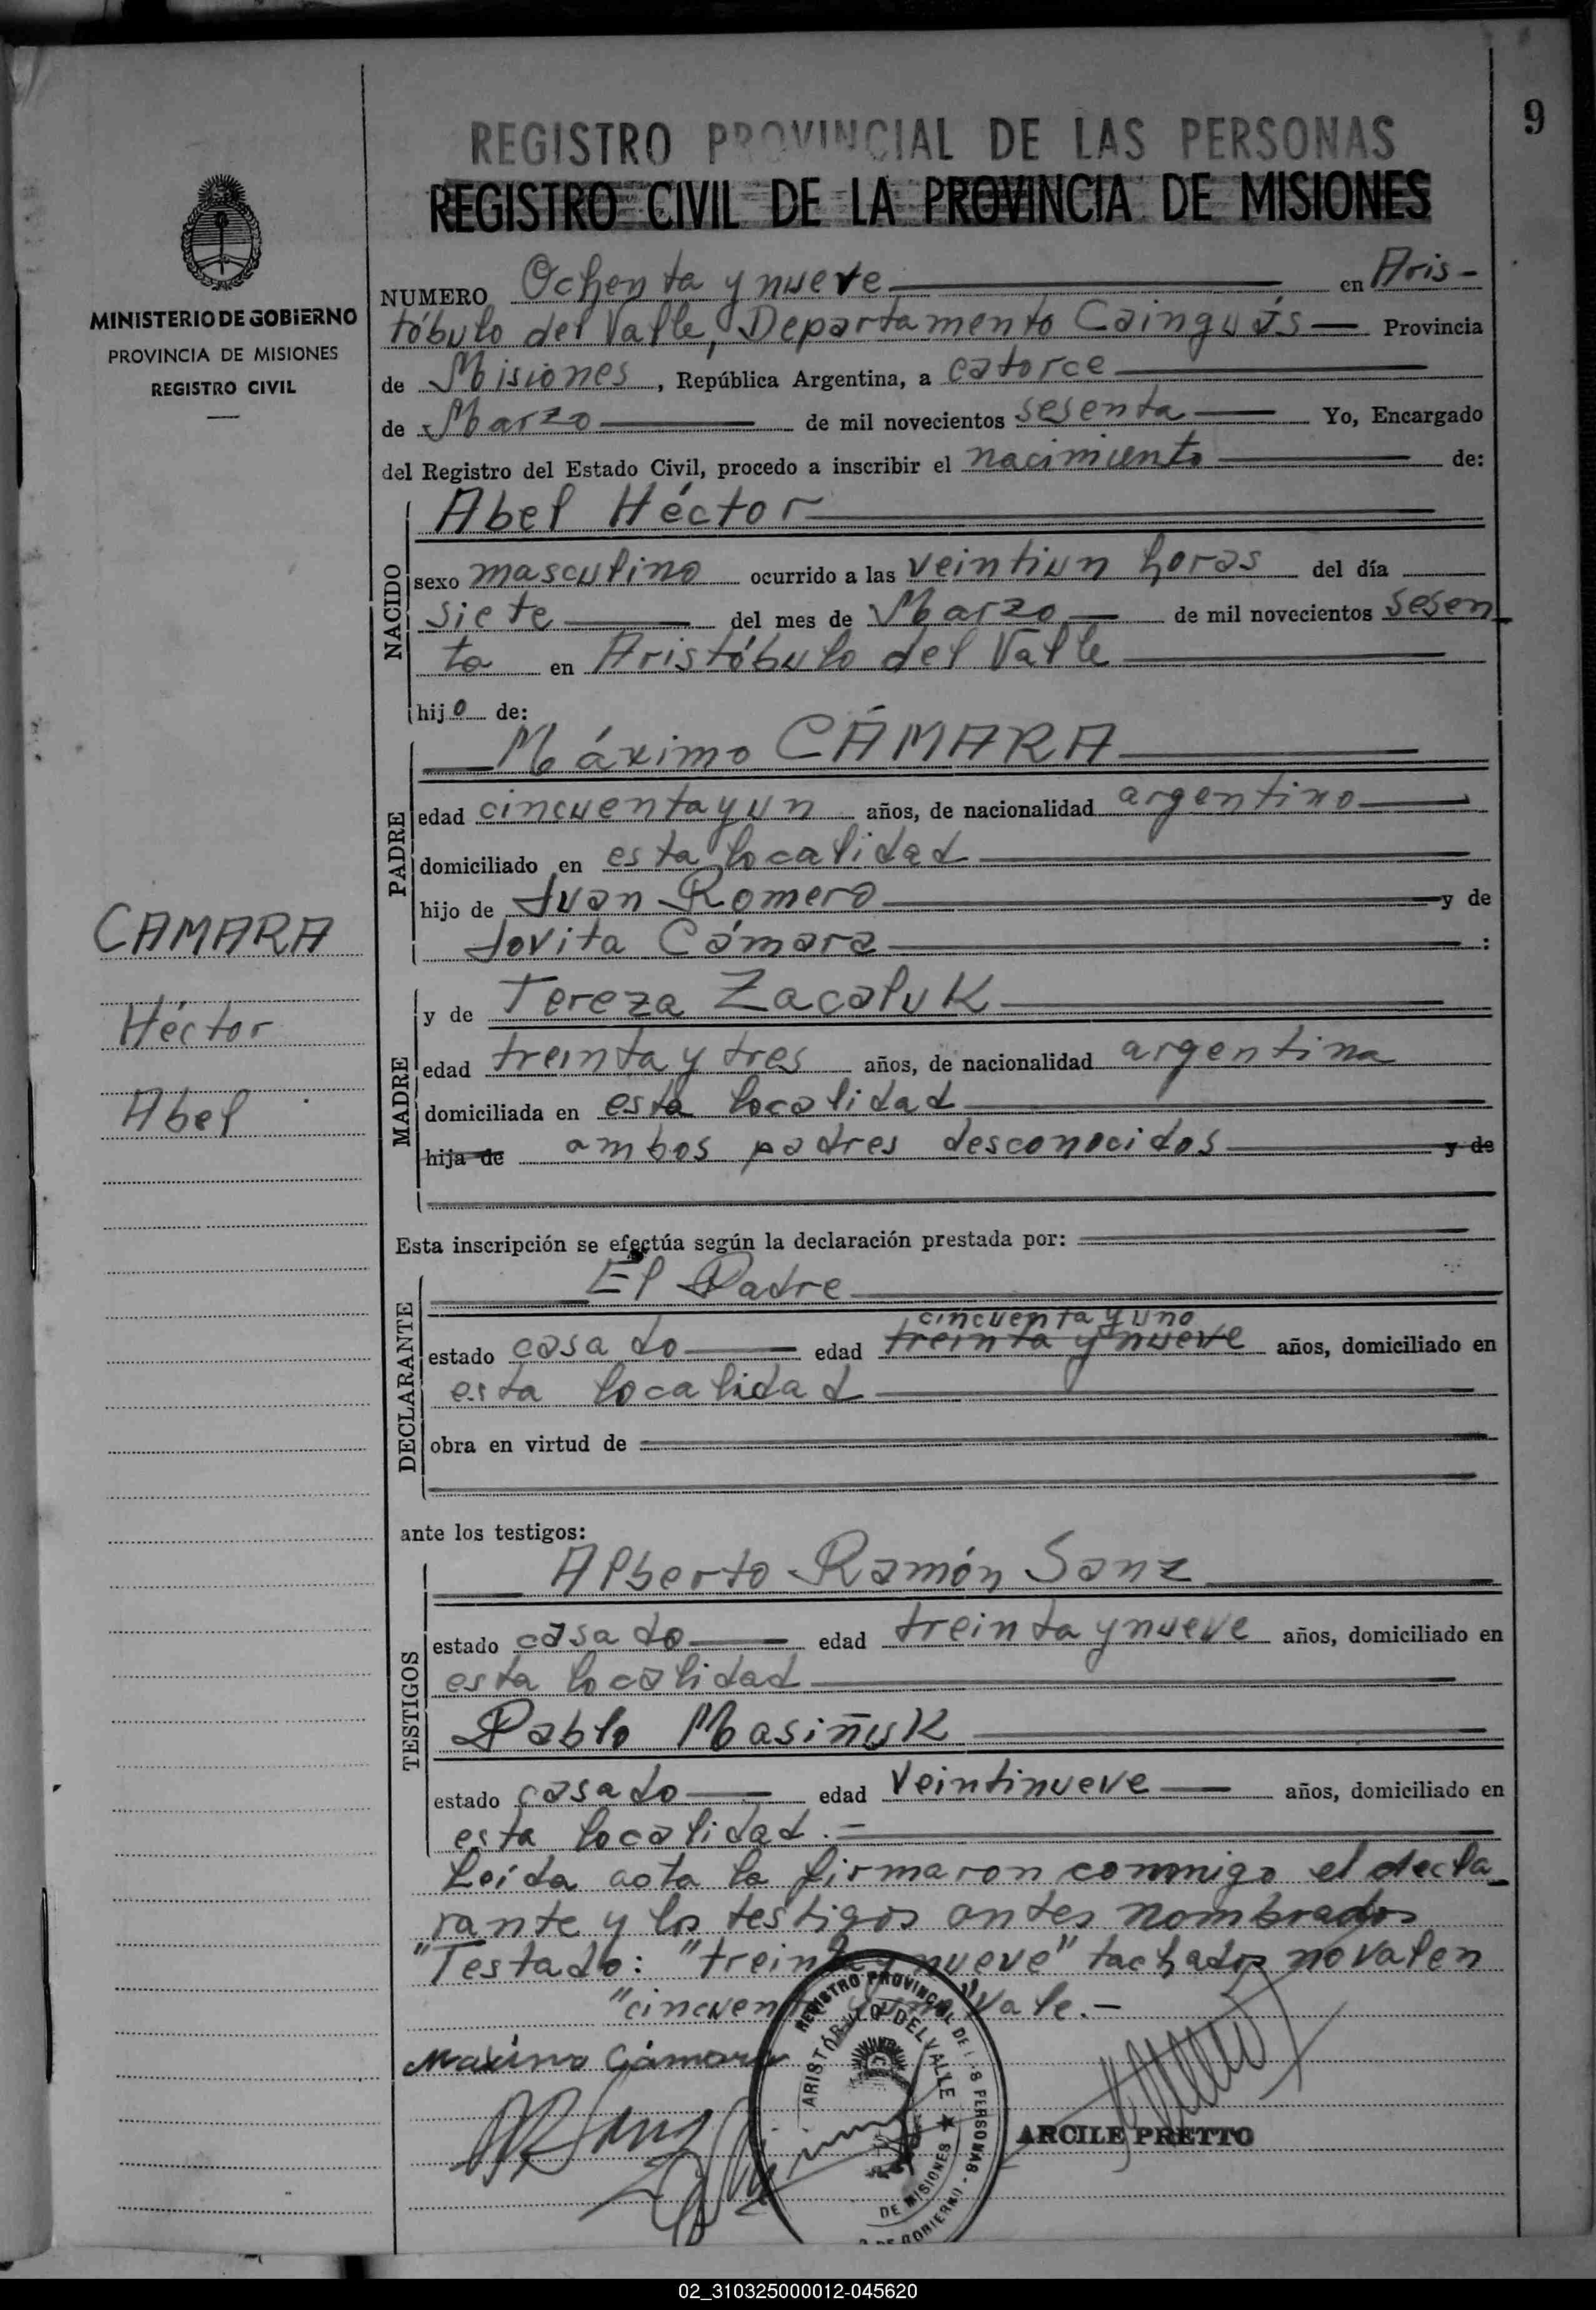 9
REGISTRO PROVINCIAL DE LAS PERSONAS
REGISTRO CIVIL DE LA PROVINCIA DE MISIONES
MINISTERIO DE GOBIERNO
PROVINCIA DE MISIONES
REGISTRO CIVIL
NUMERO Ochenta y nueve en Aris-
tóbulo del Valle, Departamento Cainguás Provincia
de Misiones, República Argentina, a catorce
de Marzo de mil novecientos sesenta Yo, Encargado
del Registro del Estado Civil, procedo a inscribir el nacimiento de:
NACIDO
Abel Héctor
sexo masculino ocurrido a las veintiun horas del día
siete del mes de Marzo de mil novecientos sesen_
ta en Aristóbulo del Valle
hijo de:
PADRE
Máximo CÁMARA
edad cincuenta y un años, de nacionalidad argentino
domiciliado en esta localidad
hijo de Juan Romero y de
Jovita Cámara :
CAMARA
Héctor
Abel
MADRE
y de Tereza Zacaluk
edad treinta y tres años, de nacionalidad argentina
domiciliada en esta localidad
hija de ambos padres desconocidos y de
Esta inscripción se efectúa según la declaración prestada por:
DECLARANTE
El Padre
cincuenta y uno
estado casado edad treinta y nueve años, domiciliado en
esta localidad
obra en virtud de
ante los testigos:
TESTIGOS
Alberto Ramón Sanz
estado casado edad treinta y nueve años, domiciliado en
esta localidad
Pablo Masiñuk
estado casado edad veintinueve años, domiciliado en
esta localidad.-
Leída acta la firmaron conmigo el decla_
rante y los testigos antes nombrados
"Testado: "treinta y nueve" tachados no valen
"cincuenta y uno" Vale.-
Maximo Cámara
REGISTRO PROVINCIAL DE LAS PERSONAS -
ARISTÓBULO DEL VALLE ★
DE MISIONES
DE GOBIERNO
ARCILE PRETTO
02_310325000012-045620